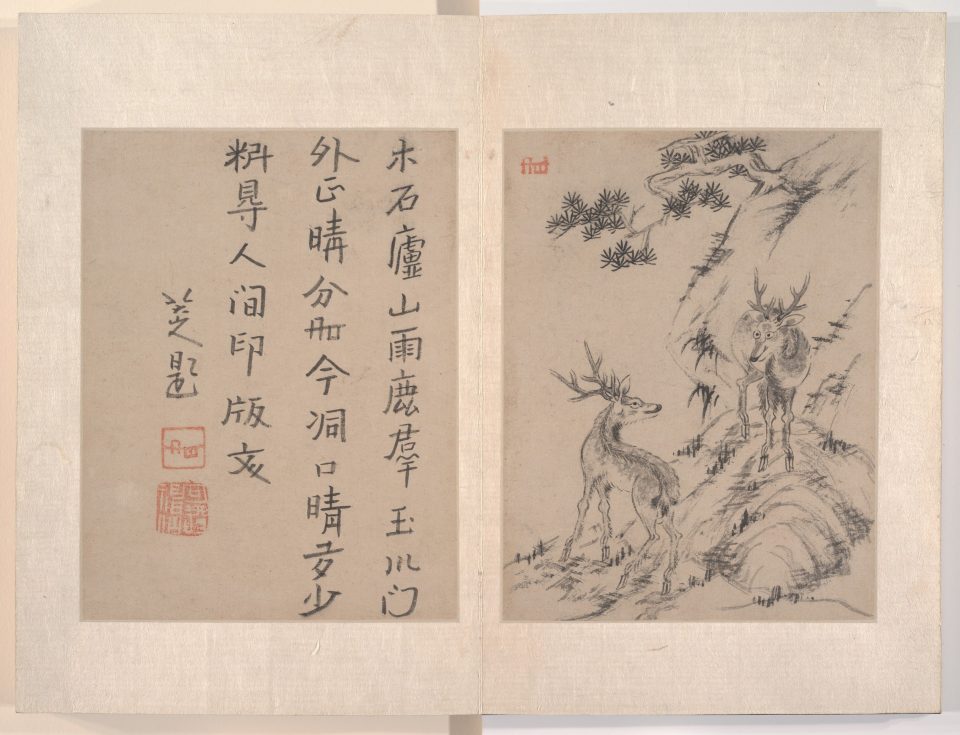 木石廬山雨鹿羣玉川门
外正晴分今洞口晴多少
料㝵人间印版文
題